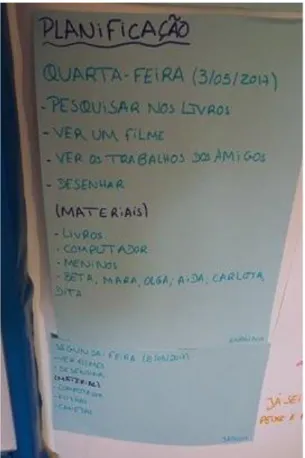 PLANIFICAÇÃO
QUARTA-FEIRA (3/05/2017)
- PESQUISAR NOS LIVROS
- VER UM FILME
- VER OS TRABALHOS DOS AMIGOS
- DESENHAR
(MATERIAIS)
- LIVROS
- COMPUTADOR
- MENINOS
- BETA, MARA, OLGA, AIDA, CARLOTA,
DITA
SEGUNDA-FEIRA
- VER FILMES
- DESENHAR
(MATERIAIS)
- COMPUTADOR
- CANETAS
JÁ SEI